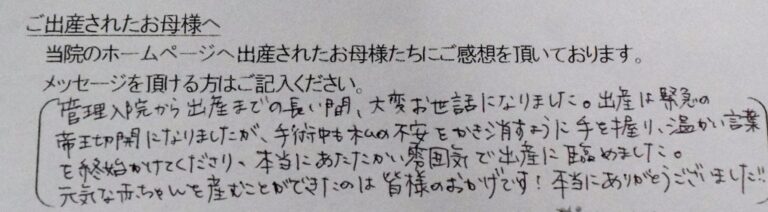 ご出産されたお母様へ
当院のホームページへ出産されたお母様たちにご感想を頂いております。
メッセージを頂ける方はご記入ください。
管理入院から出産までの長い間、大変お世話になりました。出産は緊急の
帝王切開になりましたが、手術中も私の不安をかき消すように手を握り、温かい言葉
を終始かけてくださり、本当にあたたかい雰囲気で出産に臨めました。
元気な赤ちゃんを産むことができたのは皆様のおかげです!本当にありがとうございました!!